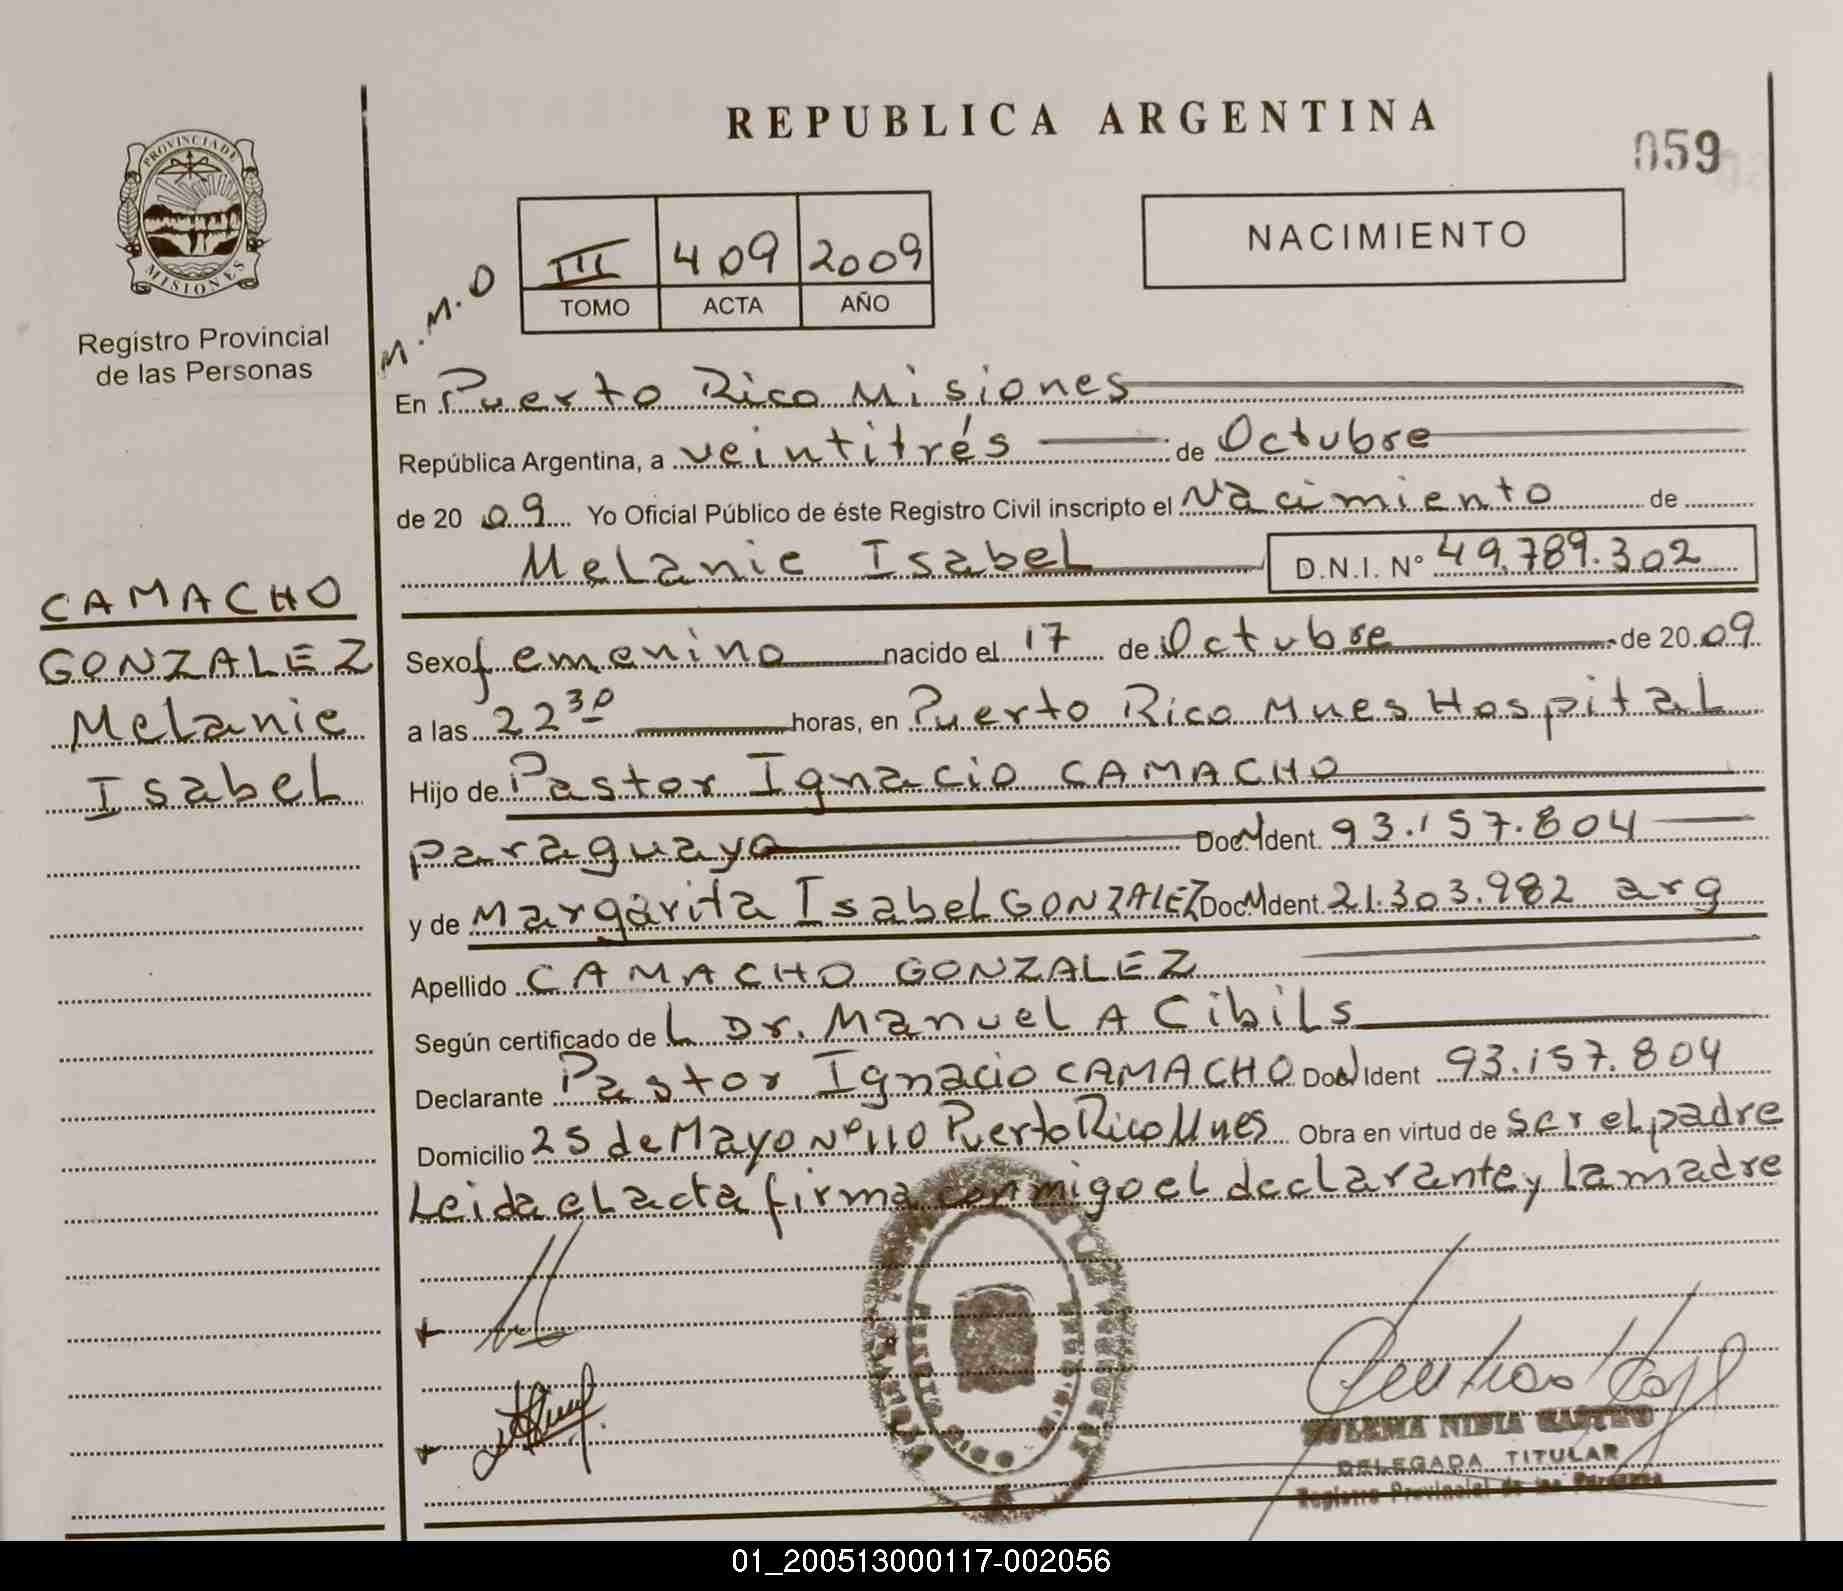 REPUBLICA ARGENTINA
059
PROVINCIA DE
MISIONES
Registro Provincial
de las Personas
M.M.O
III 409 2009
TOMO ACTA AÑO
NACIMIENTO
En Puerto Rico Misiones
República Argentina, a veintitrés de Octubre
de 2009 Yo Oficial Público de éste Registro Civil inscripto el Nacimiento de
Melanie Isabel D.N.I. Nº 49.789.302
CAMACHO
GONZALEZ
Melanie
Isabel
Sexo femenino nacido el 17 de Octubre de 2009
a las 22 30 horas, en Puerto Rico Mnes Hospital
Hijo de Pastor Ignacio CAMACHO
paraguayo Doc. Ident. 93.157.804
y de Margarita Isabel GONZALEZ Doc. Ident. 21.303.982 arg
Apellido CAMACHO GONZALEZ
Según certificado de L Dr. Manuel A Cibils
Declarante Pastor Ignacio CAMACHO Doc Ident 93.157.804
Domicilio 25 de Mayo Nº 110 Puerto Rico Mnes Obra en virtud de ser el padre
Leida el acta firma conmigo el declarante y la madre
PUERTO RICO
ZULEMA NIDIA CASTRO
DELEGADA TITULAR
Registro Provincial de las Personas
01_200513000117-002056